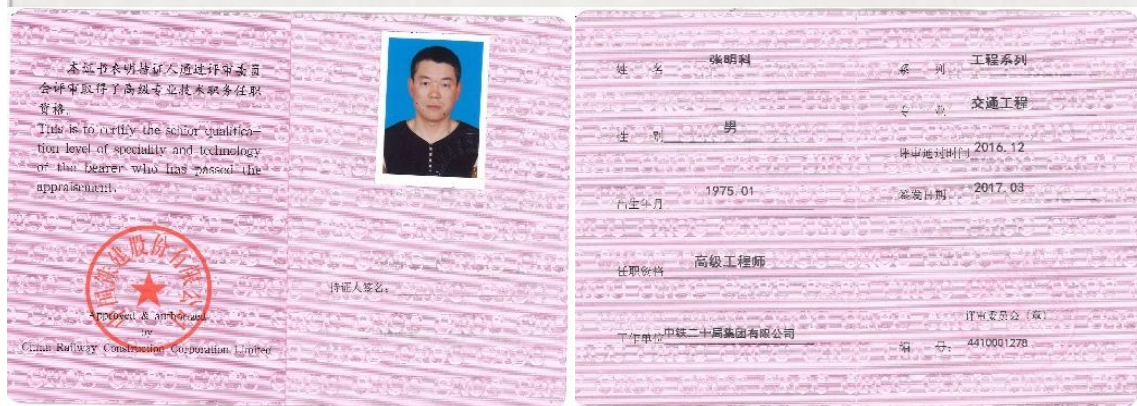 本证书表明持证人通过评审委员
会评审取得了高级专业技术职务任职
资格。
This is to certify the senior qualifica-
tion level of speciality and technology
of the bearer who has passed the
appraisement.
Approved & authorized
by
China Railway Construction Corporation Limited
持证人签名：
姓 名 张明科
性 别 男
出生年月 1975.01
任职资格 高级工程师
工作单位 中铁二十局集团有限公司
系 列 工程系列
专 业 交通工程
评审通过时间 2016.12
签发日期 2017.03
评审委员会（章）
编 号： 4410001278